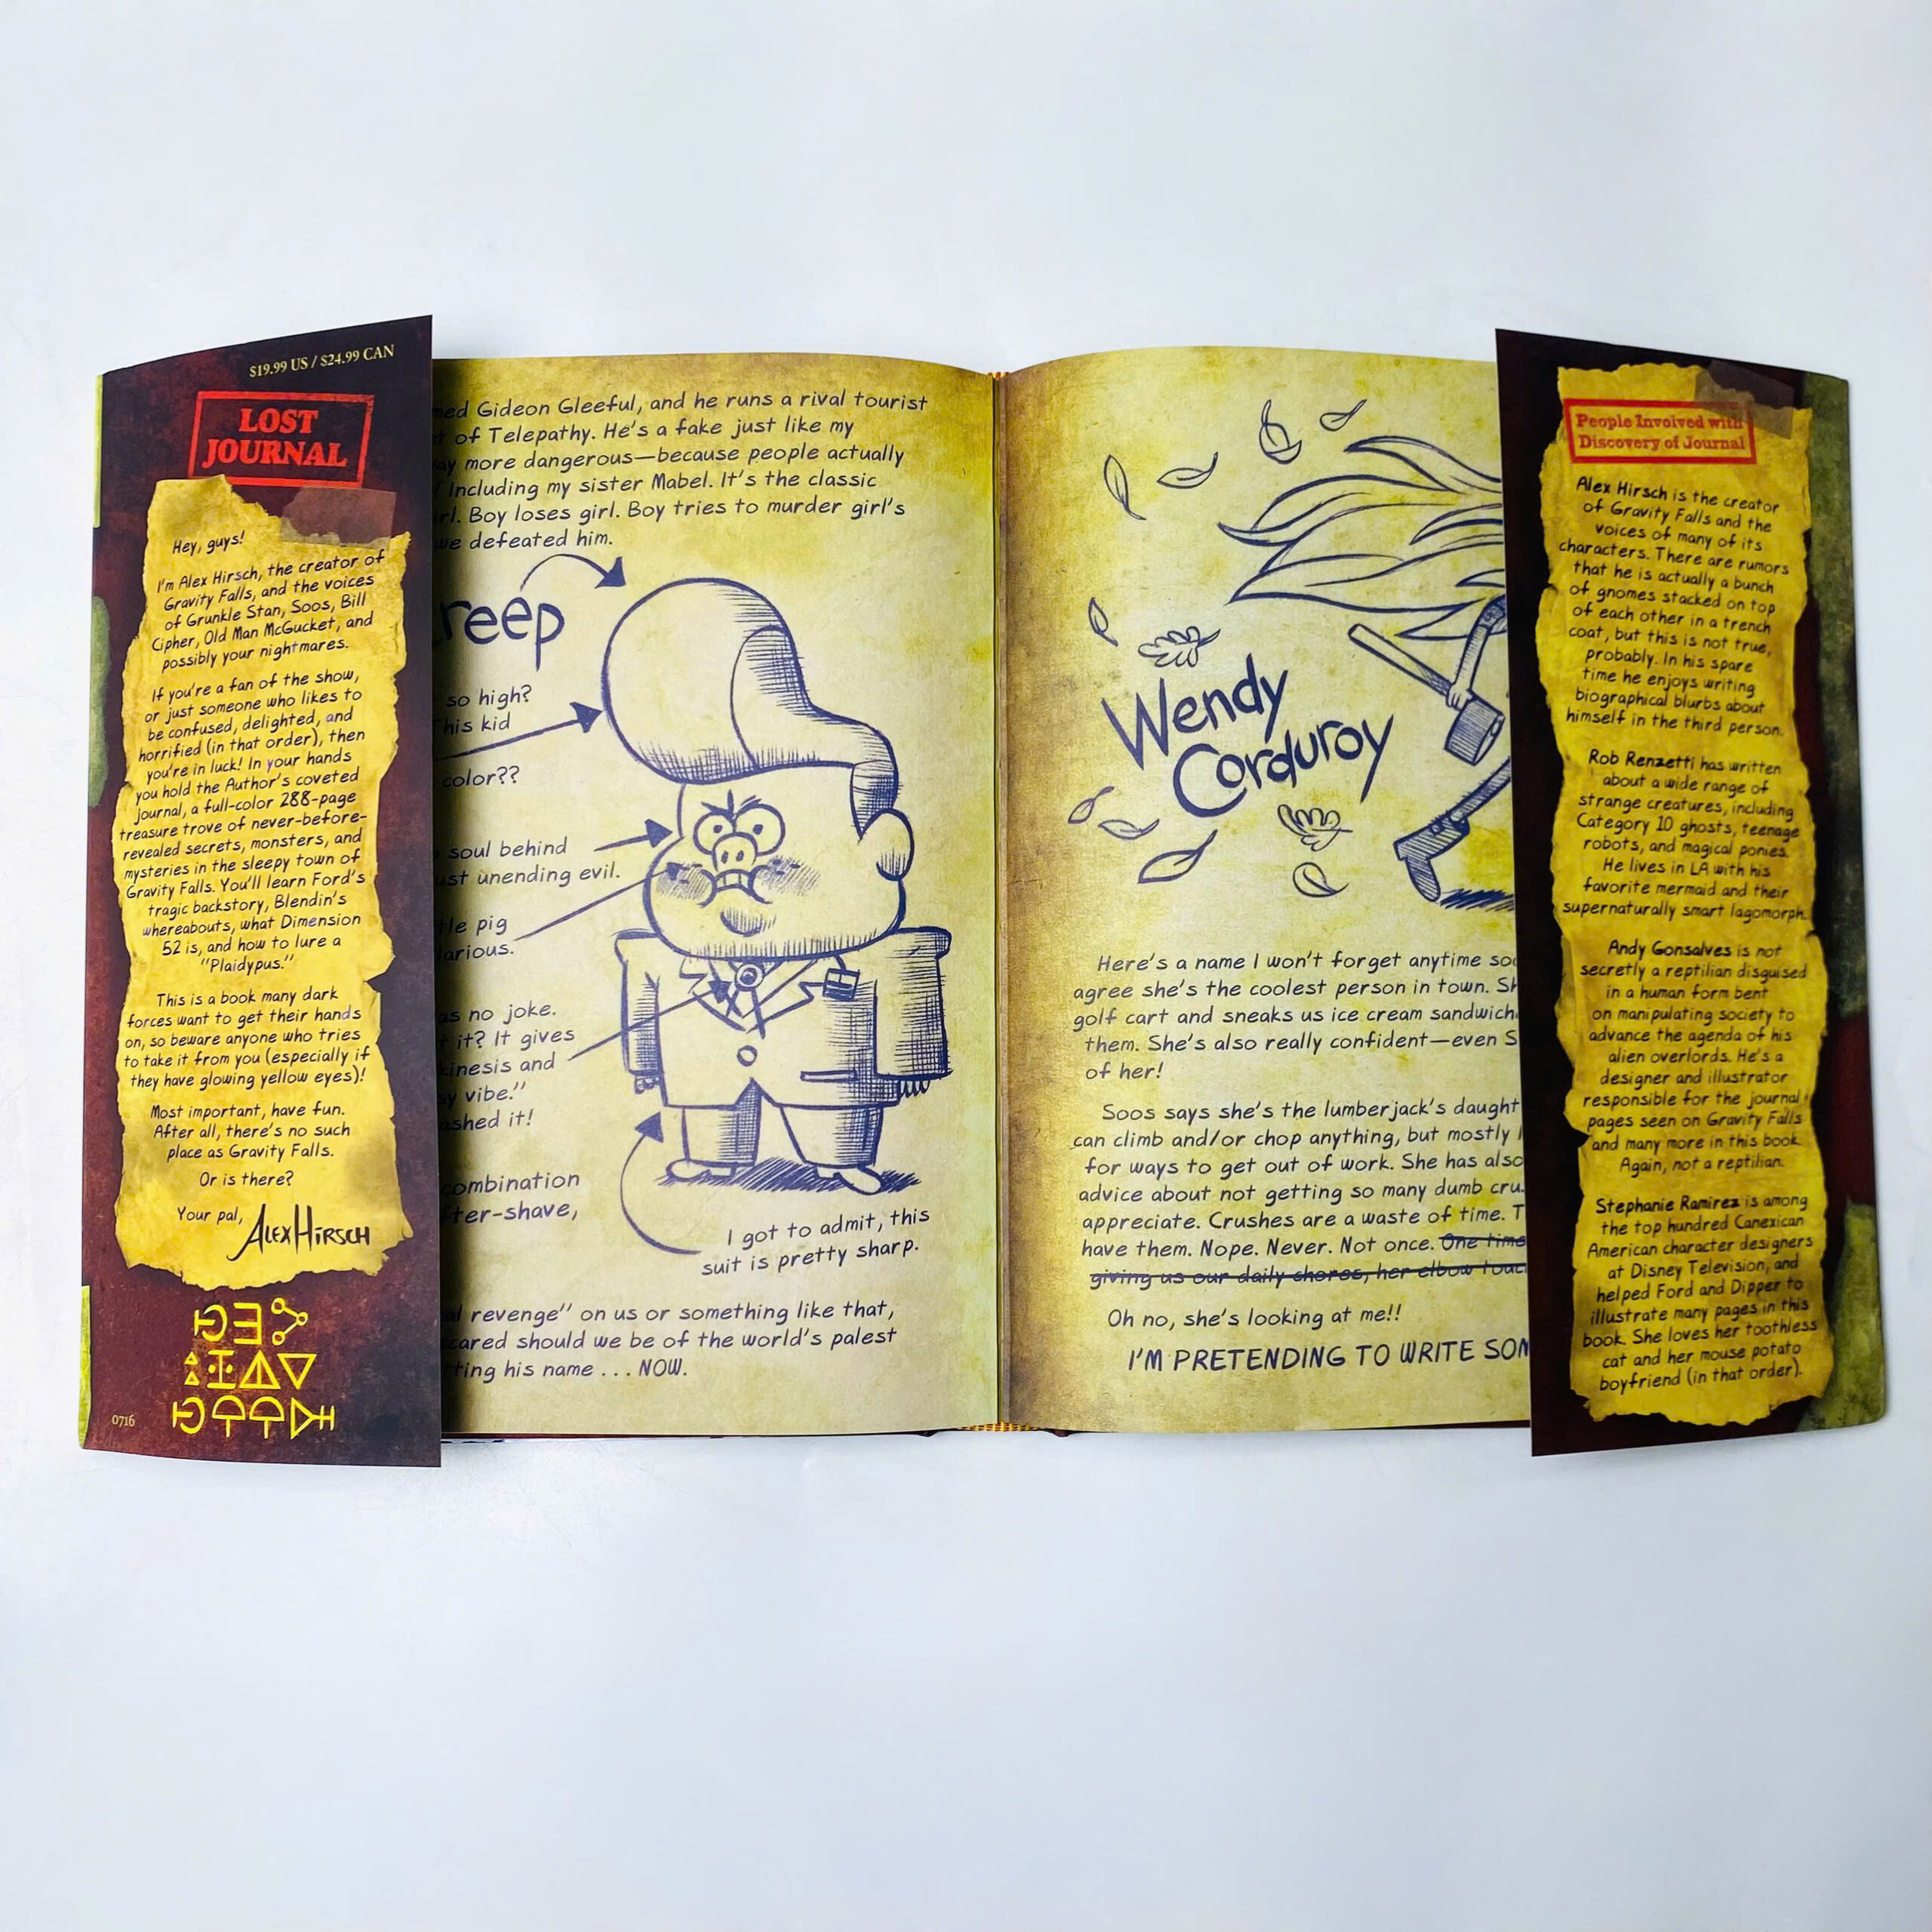 $19.99 US / $24.99 CAN
LOST
JOURNAL
Hey, guys!
I'm Alex Hirsch, the creator of
Gravity Falls, and the voices
of Grunkle Stan, Soos, Bill
Cipher, Old Man McGucket, and
possibly your nightmares.
If you're a fan of the show,
or just someone who likes to
be confused, delighted, and
horrified (in that order), then
you're in luck! In your hands
you hold the Author's coveted
journal, a full-color 288-page
treasure trove of never-before-
revealed secrets, monsters, and
mysteries in the sleepy town of
Gravity Falls. You'll learn Ford's
tragic backstory, Blendin's
whereabouts, what Dimension
52 is, and how to lure a
"Plaidypus."
This is a book many dark
forces want to get their hands
on, so beware anyone who tries
to take it from you (especially if
they have glowing yellow eyes)!
Most important, have fun.
After all, there's no such
place as Gravity Falls.
Or is there?
Your pal, ALEX HIRSCH
0716
Gideon Gleeful, and he runs a rival tourist
of Telepathy. He's a fake just like my
more dangerous—because people actually
Including my sister Mabel. It's the classic
Boy loses girl. Boy tries to murder girl's
we defeated him.
reep
so high?
This kid
color??
soul behind
unending evil.
pig
no joke.
it? It gives
and
vibe."
it!
combination
I got to admit, this
suit is pretty sharp.
revenge" on us or something like that,
should we be of the world's palest
his name . . . NOW.
Wendy
Corduroy
Here's a name I won't forget anytime
agree she's the coolest person in town.
golf cart and sneaks us ice cream
them. She's also really confident—even
of her!
Soos says she's the lumberjack's
can climb and/or chop anything, but mostly
for ways to get out of work. She has also
advice about not getting so many dumb
appreciate. Crushes are a waste of time.
have them. Nope. Never. Not once. One time
giving us our daily chores, her elbow
Oh no, she's looking at me!!
I'M PRETENDING TO WRITE
People Involved with
Discovery of Journal
Alex Hirsch is the creator
of Gravity Falls and the
voices of many of its
characters. There are rumors
that he is actually a bunch
of gnomes stacked on top
of each other in a trench
coat, but this is not true,
probably. In his spare
time he enjoys writing
biographical blurbs about
himself in the third person.
Rob Renzetti has written
about a wide range of
strange creatures, including
Category 10 ghosts, teenage
robots, and magical ponies.
He lives in LA with his
favorite mermaid and their
supernaturally smart lagomorph.
Andy Gonsalves is not
secretly a reptilian disguised
in a human form bent
on manipulating society to
advance the agenda of his
alien overlords. He's a
designer and illustrator
responsible for the journal
pages seen on Gravity Falls
and many more in this book.
Again, not a reptilian.
Stephanie Ramirez is among
the top hundred Canexican
American character designers
at Disney Television, and
helped Ford and Dipper to
illustrate many pages in this
book. She loves her toothless
cat and her mouse potato
boyfriend (in that order).